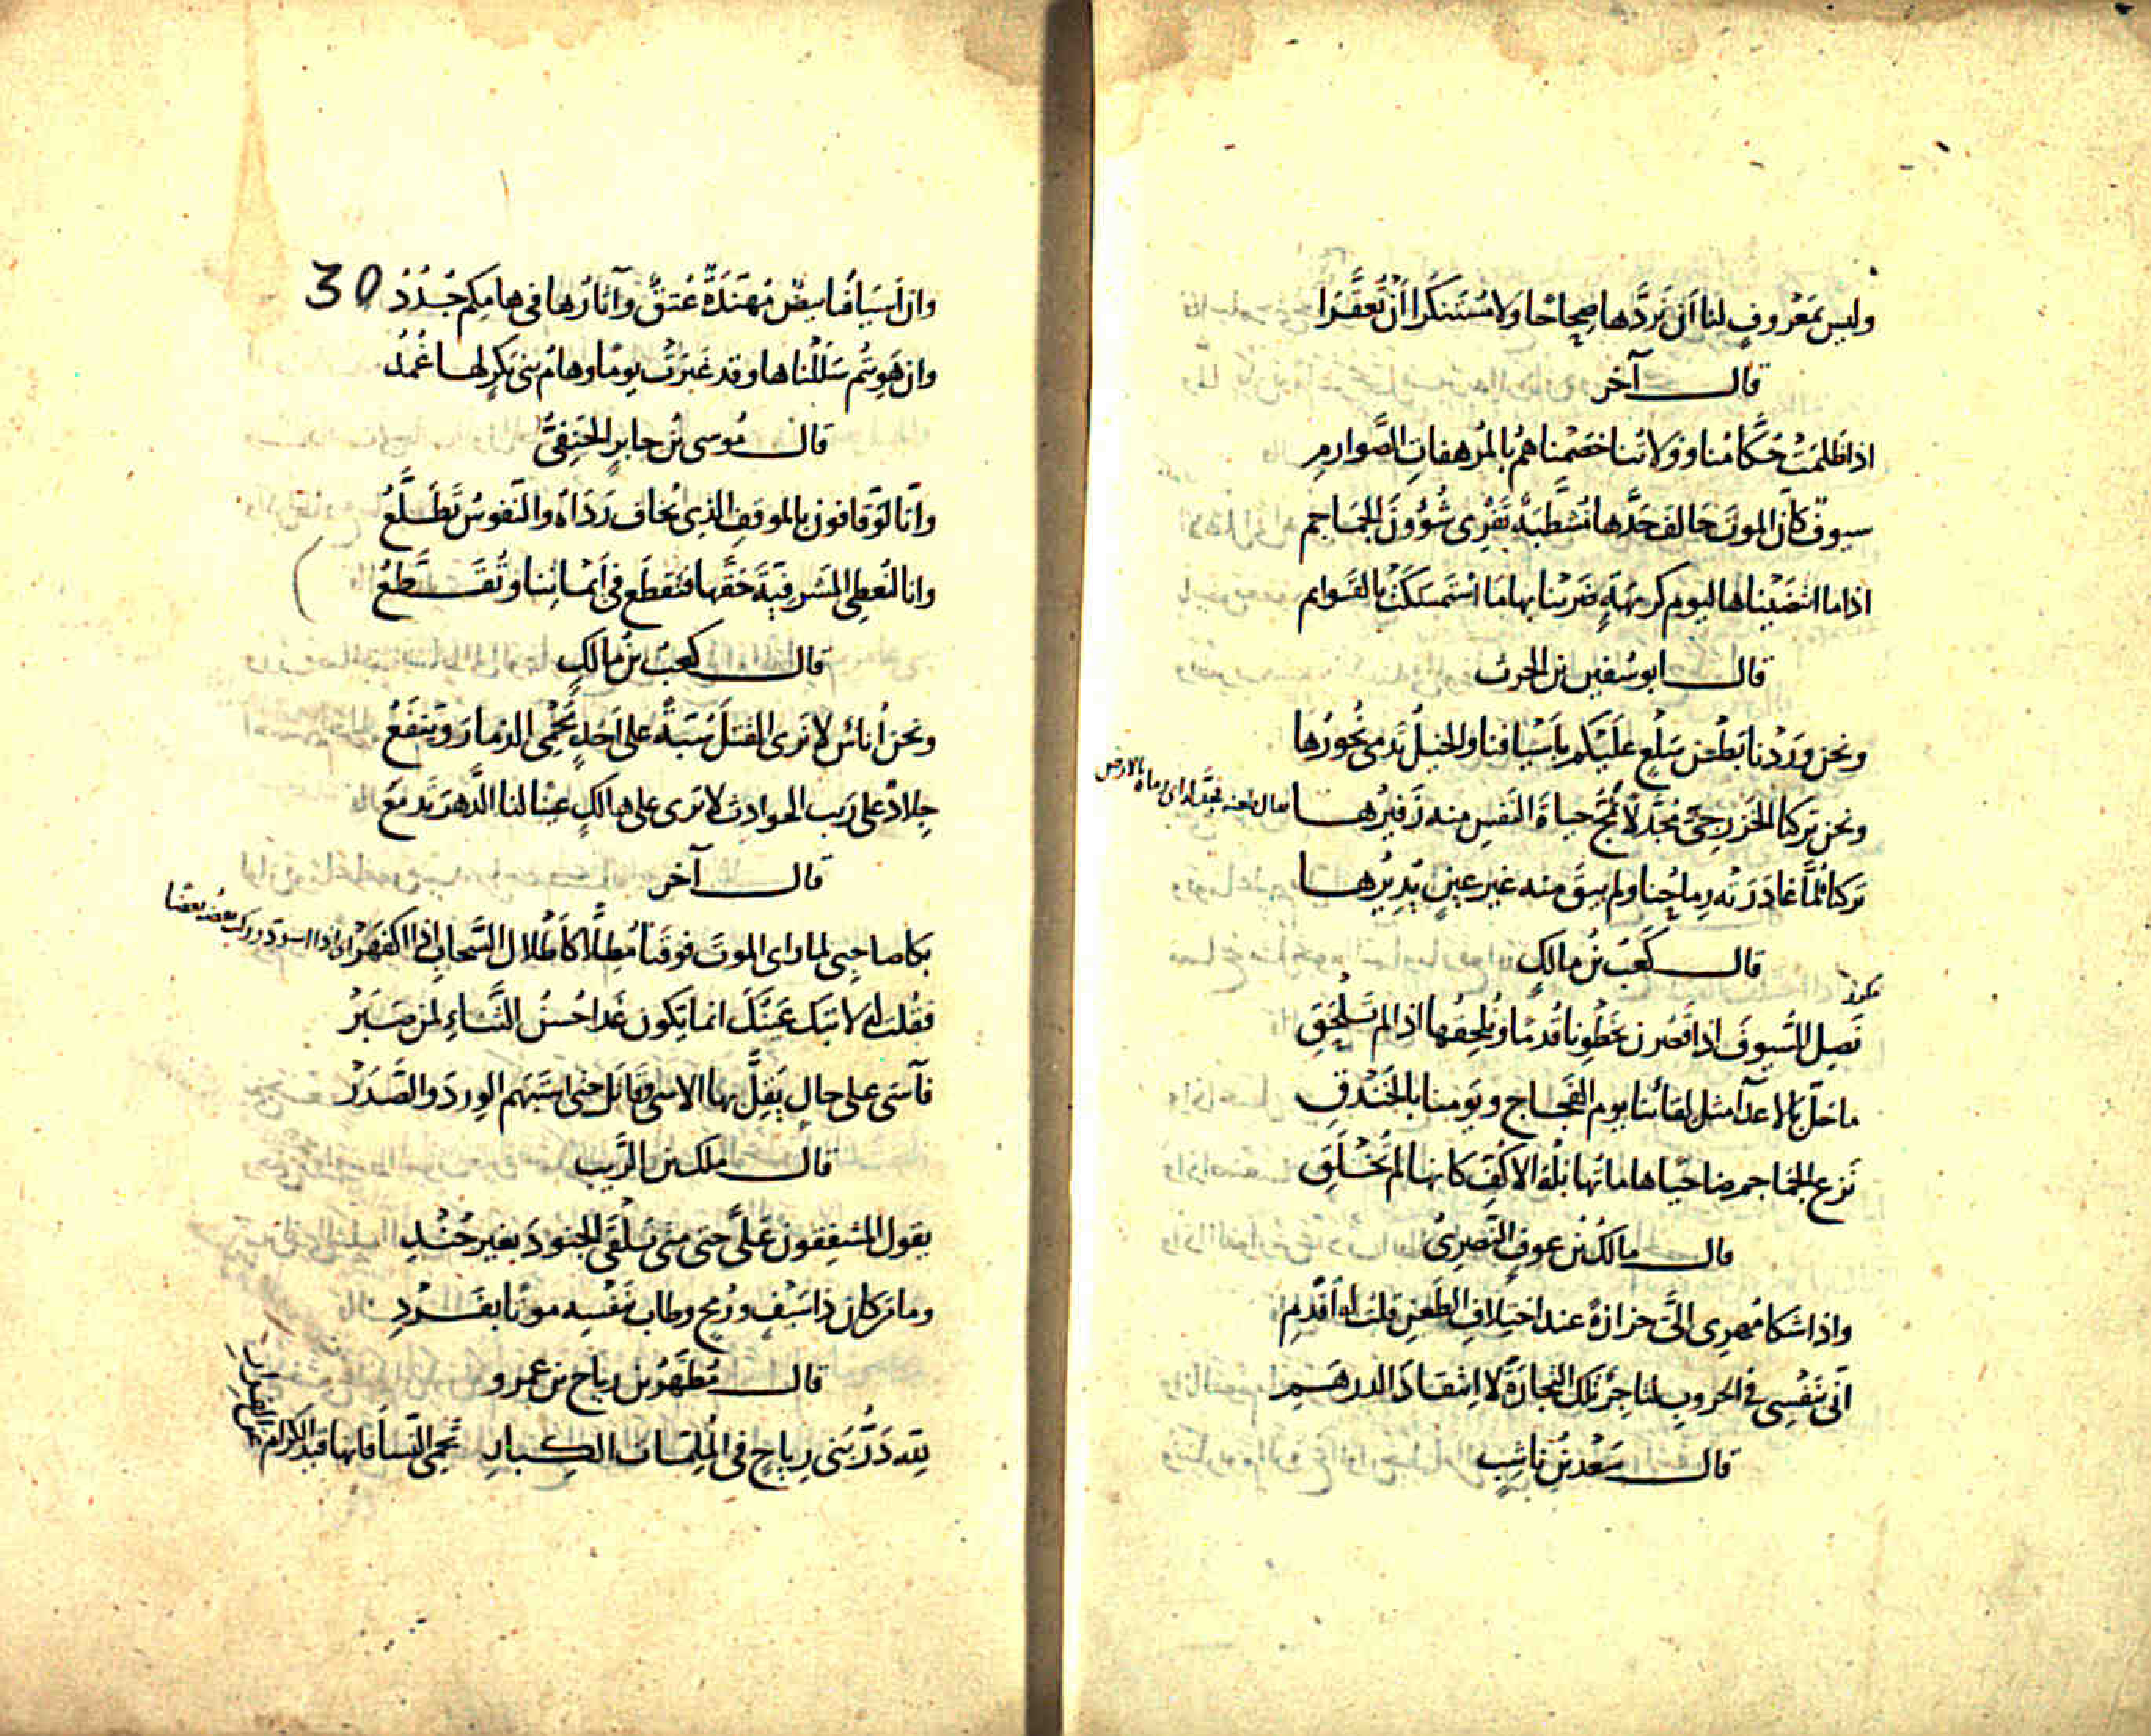 وليس بمَعْروفٍ لنا اَن نَردَّها صِحاحًا ولا مُسْتَنكَرا أَنْ تُعَقَّرَا
قال آخر
اذا ظلمَتْ حُكَّامُنا وولاتُنا خَصَمْناهمُ بالمُرْهفاتِ الصَّوارمِ
سيوفٌ كاَن الموتَ حالف حَدَّها مُشَطَّبَةٌ تَفْرِى شُؤُونَ الجَماجمِ
اذا ما انتَضَيْناها ليوم كريهَةٍ ضَرَبْنا بها مَا اسْتَمسَكَتْ بالقَوايم
قال ابو سُفين بن الحرث
ونحن ورَدْنا بَطْنَ سَلْعٍ عَلَيْكم باَسْيافنا والخيلُ تَدمى نُحُورُها
ونحن تركنا الخَزرجىَّ مُجَدَّلًا تَمُجُّ حياةَ النَفسِ منه زَفيرُها
يقال طعنه فجدَّله اى رماه بالارض
تركناه لمَّا غادَرَتْه رِماحُنا ولم يبقَ منه غير عينٍ يُديرُها
قال كَعْبُ بنُ مالكٍ
مكرر
نَصِلُ السُيوفَ اذا قَصُرن بخَطْوِنا قُدمًا ونُلحِقُها اذا لم تَلْحَقِ
ما حَلَّ بالاعدآ مثل لقائنا يوم الفِجاج ويَومنا بالخَنْدقِ
نَزع الجَماجم ضاحيًا هاماتُها بَلْهَ الاكُفِّ كانها لم تُخْلَقِ
قال مالكُ بنُ عوفٍ النَّصرِىُّ
واذا شكا مُهرِى الىَّ حزازةً عند اختِلافِ الطَعنِ قلتُ له اقدُمِ
انّى بنَفْسِى فى الحروبِ لتاجِرٌ تلك التجارَةُ لا انتقادَ الدرهَمِ
قال سَعْدُ بنُ ناشِبٍ
وان اَسيَافُنا بيضٌ مُهَنَّدَةٌ عُتقٌ وآثارُها فى هامِكم جُدُدُ
30
وان هَوِيتُم سَلَلْناها وقد غَبَرَتْ يومًا وهامُ بنى بَكرٍ لها غُمُدُ
قال مُوسى بنُ جابرٍ الحَنِفىُّ
وانّا لوَقافون بالموقفِ الذى يُخاف رَدَاهُ والنّفوسُ تَطَلَّعُ
وانا لنُعطِى المَشرفيَّةَ حَقَّها فتَقطَع فى اَيْمانِنا وتُقَطَّعُ
قال كعبُ بنُ مالكٍ
ونحن اُناسٌ لا نَرى القتلَ سُبَّةً على اَحَدٍ يَحْمِى الذِمارَ ويَنفَعُ
جِلادٌ على رَيب الحوادثِ لا نرى على هالكٍ عينًا لنا الَّدهرَ تَدمَعُ
قال آخر
بكا صاحِبى لما راى الموتَ فوقَنا مُطِلًّا كاَطْلال السَّحابِ اذا اكفَهَرّ
اذا اسود وركب بعضه بعضا
فقلتُ له لا تبك عَينُكَ انما يكون غدًا حُسنُ الثَّناءِ لمن صَبَرْ
فآسَى على حالٍ يَقِلُّ بها الاسى وقاتَلَ حتى استَبْهَم الوِردَ والصَّدَرْ
قال ملك بن الرَّيب
يقول المُشفِقون علَىَّ حتى متى تَلْقَى الجنودَ بغير جُنْدِ
وما من كان ذا سَيفٍ ورُمحٍ وطاب بنَفْسِه موتًا بفَردِ
قال مُطَهَّرُ بن رياح بن عمرو
لله دَرُّ بَنى رِياحٍ فى المُلِمّات الكِبارِ